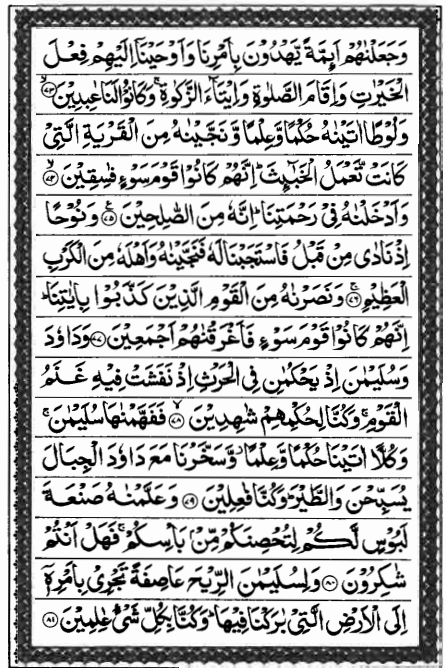 وَجَعَلْنٰهُمْ اَئِمَّةً يَّهْدُوْنَ بِاَمْرِنَا وَاَوْحَيْنَاۤ اِلَيْهِمْ فِعْلَ
الْخَيْرٰتِ وَاِقَامَ الصَّلٰوةِ وَاِيْتَآءَ الزَّكٰوةِ ۚ وَكَانُوْا لَنَا عٰبِدِيْنَ ﴿۷۳﴾
وَلُوْطًا اٰتَيْنٰهُ حُكْمًا وَّعِلْمًا وَّنَجَّيْنٰهُ مِنَ الْقَرْيَةِ الَّتِيْ
كَانَتْ تَّعْمَلُ الْخَبٰٓئِثَ ؕ اِنَّهُمْ كَانُوْا قَوْمَ سَوْءٍ فٰسِقِيْنَ ﴿۷۴﴾
وَاَدْخَلْنٰهُ فِيْ رَحْمَتِنَا ؕ اِنَّهٗ مِنَ الصّٰلِحِيْنَ ﴿۷۵﴾ وَنُوْحًا
اِذْ نَادٰى مِنْ قَبْلُ فَاسْتَجَبْنَا لَهٗ فَنَجَّيْنٰهُ وَاَهْلَهٗ مِنَ الْكَرْبِ
الْعَظِيْمِ ﴿۷۶﴾ وَنَصَرْنٰهُ مِنَ الْقَوْمِ الَّذِيْنَ كَذَّبُوْا بِاٰيٰتِنَا ؕ
اِنَّهُمْ كَانُوْا قَوْمَ سَوْءٍ فَاَغْرَقْنٰهُمْ اَجْمَعِيْنَ ﴿۷۷﴾ وَدَاوٗدَ
وَسُلَيْمٰنَ اِذْ يَحْكُمٰنِ فِي الْحَرْثِ اِذْ نَفَشَتْ فِيْهِ غَنَمُ
الْقَوْمِ ۚ وَكُنَّا لِحُكْمِهِمْ شٰهِدِيْنَ ﴿۷۸﴾ فَفَهَّمْنٰهَا سُلَيْمٰنَ ۚ
وَكُلًّا اٰتَيْنَا حُكْمًا وَّعِلْمًا ؗ وَّسَخَّرْنَا مَعَ دَاوٗدَ الْجِبَالَ
يُسَبِّحْنَ وَالطَّيْرَ ؕ وَكُنَّا فٰعِلِيْنَ ﴿۷۹﴾ وَعَلَّمْنٰهُ صَنْعَةَ
لَبُوْسٍ لَّكُمْ لِتُحْصِنَكُمْ مِّنْۢ بَاْسِكُمْ ۚ فَهَلْ اَنْتُمْ
شٰكِرُوْنَ ﴿۸۰﴾ وَلِسُلَيْمٰنَ الرِّيْحَ عَاصِفَةً تَجْرِيْ بِاَمْرِهٖۤ
اِلَى الْاَرْضِ الَّتِيْ بٰرَكْنَا فِيْهَا ؕ وَكُنَّا بِكُلِّ شَيْءٍ عٰلِمِيْنَ ﴿۸۱﴾